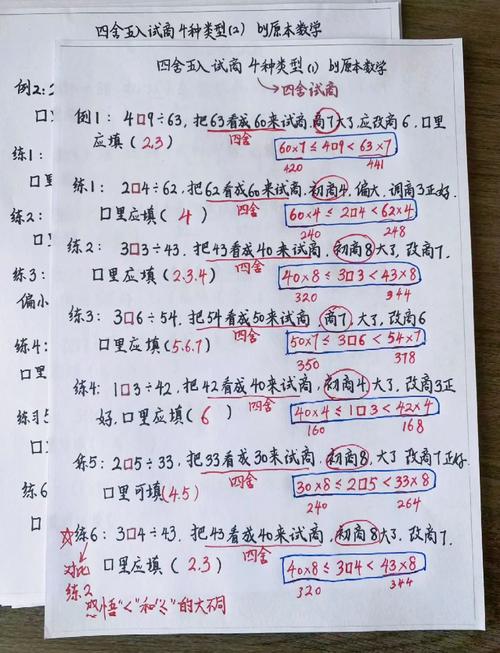 四舍五入试商4种类型(2) by原本数学
四舍五入试商4种类型(1) by原本数学
→四舍试商
例2:
口里
练1:
口里
练2:
口
练3:
偏小
练4:
口里
练习5
口里
练6
例1: 4口9÷63, 把63看成60来试商, 商7大了, 应改商6, 口里
四舍
应填(2.3)
60×7≤4口9<63×7
420 441
练1: 2口4÷62, 把62看成60来试商, 初商4, 偏大, 调商3正好.
四舍
口里应填(4)
60×4≤2口4<62×4
240 248
练2: 3口3÷43, 把43看成40来试商, 初商8大了, 改商7.
四舍
口里应填(2.3.4)
40×8≤3口3<43×8
320 344
练3: 3口6÷54, 把54看成50来试商, 商7, 大了, 改商6
四舍
口里应填(5.6.7)
50×7≤3口6<54×7
350 378
练4: 1口3÷42, 把42看成40来试商, 初商4大了, 改商3正
四舍
好, 口里应填(6)
40×4≤1口3<42×4
160 168
练5: 2口5÷33, 把33看成30来试商, 初商8, 大了 改商7正好.
四舍
口里可填(4.5)
30×8≤2口5<33×8
240 264
☆练6: 3口4÷43, 把43看成40来试商, 初商8大了, 改商7.
四舍
对比 口里应填(2.3)
40×8≤3口4<43×8
320 344
练2
感悟“<”和“≤”的大不同